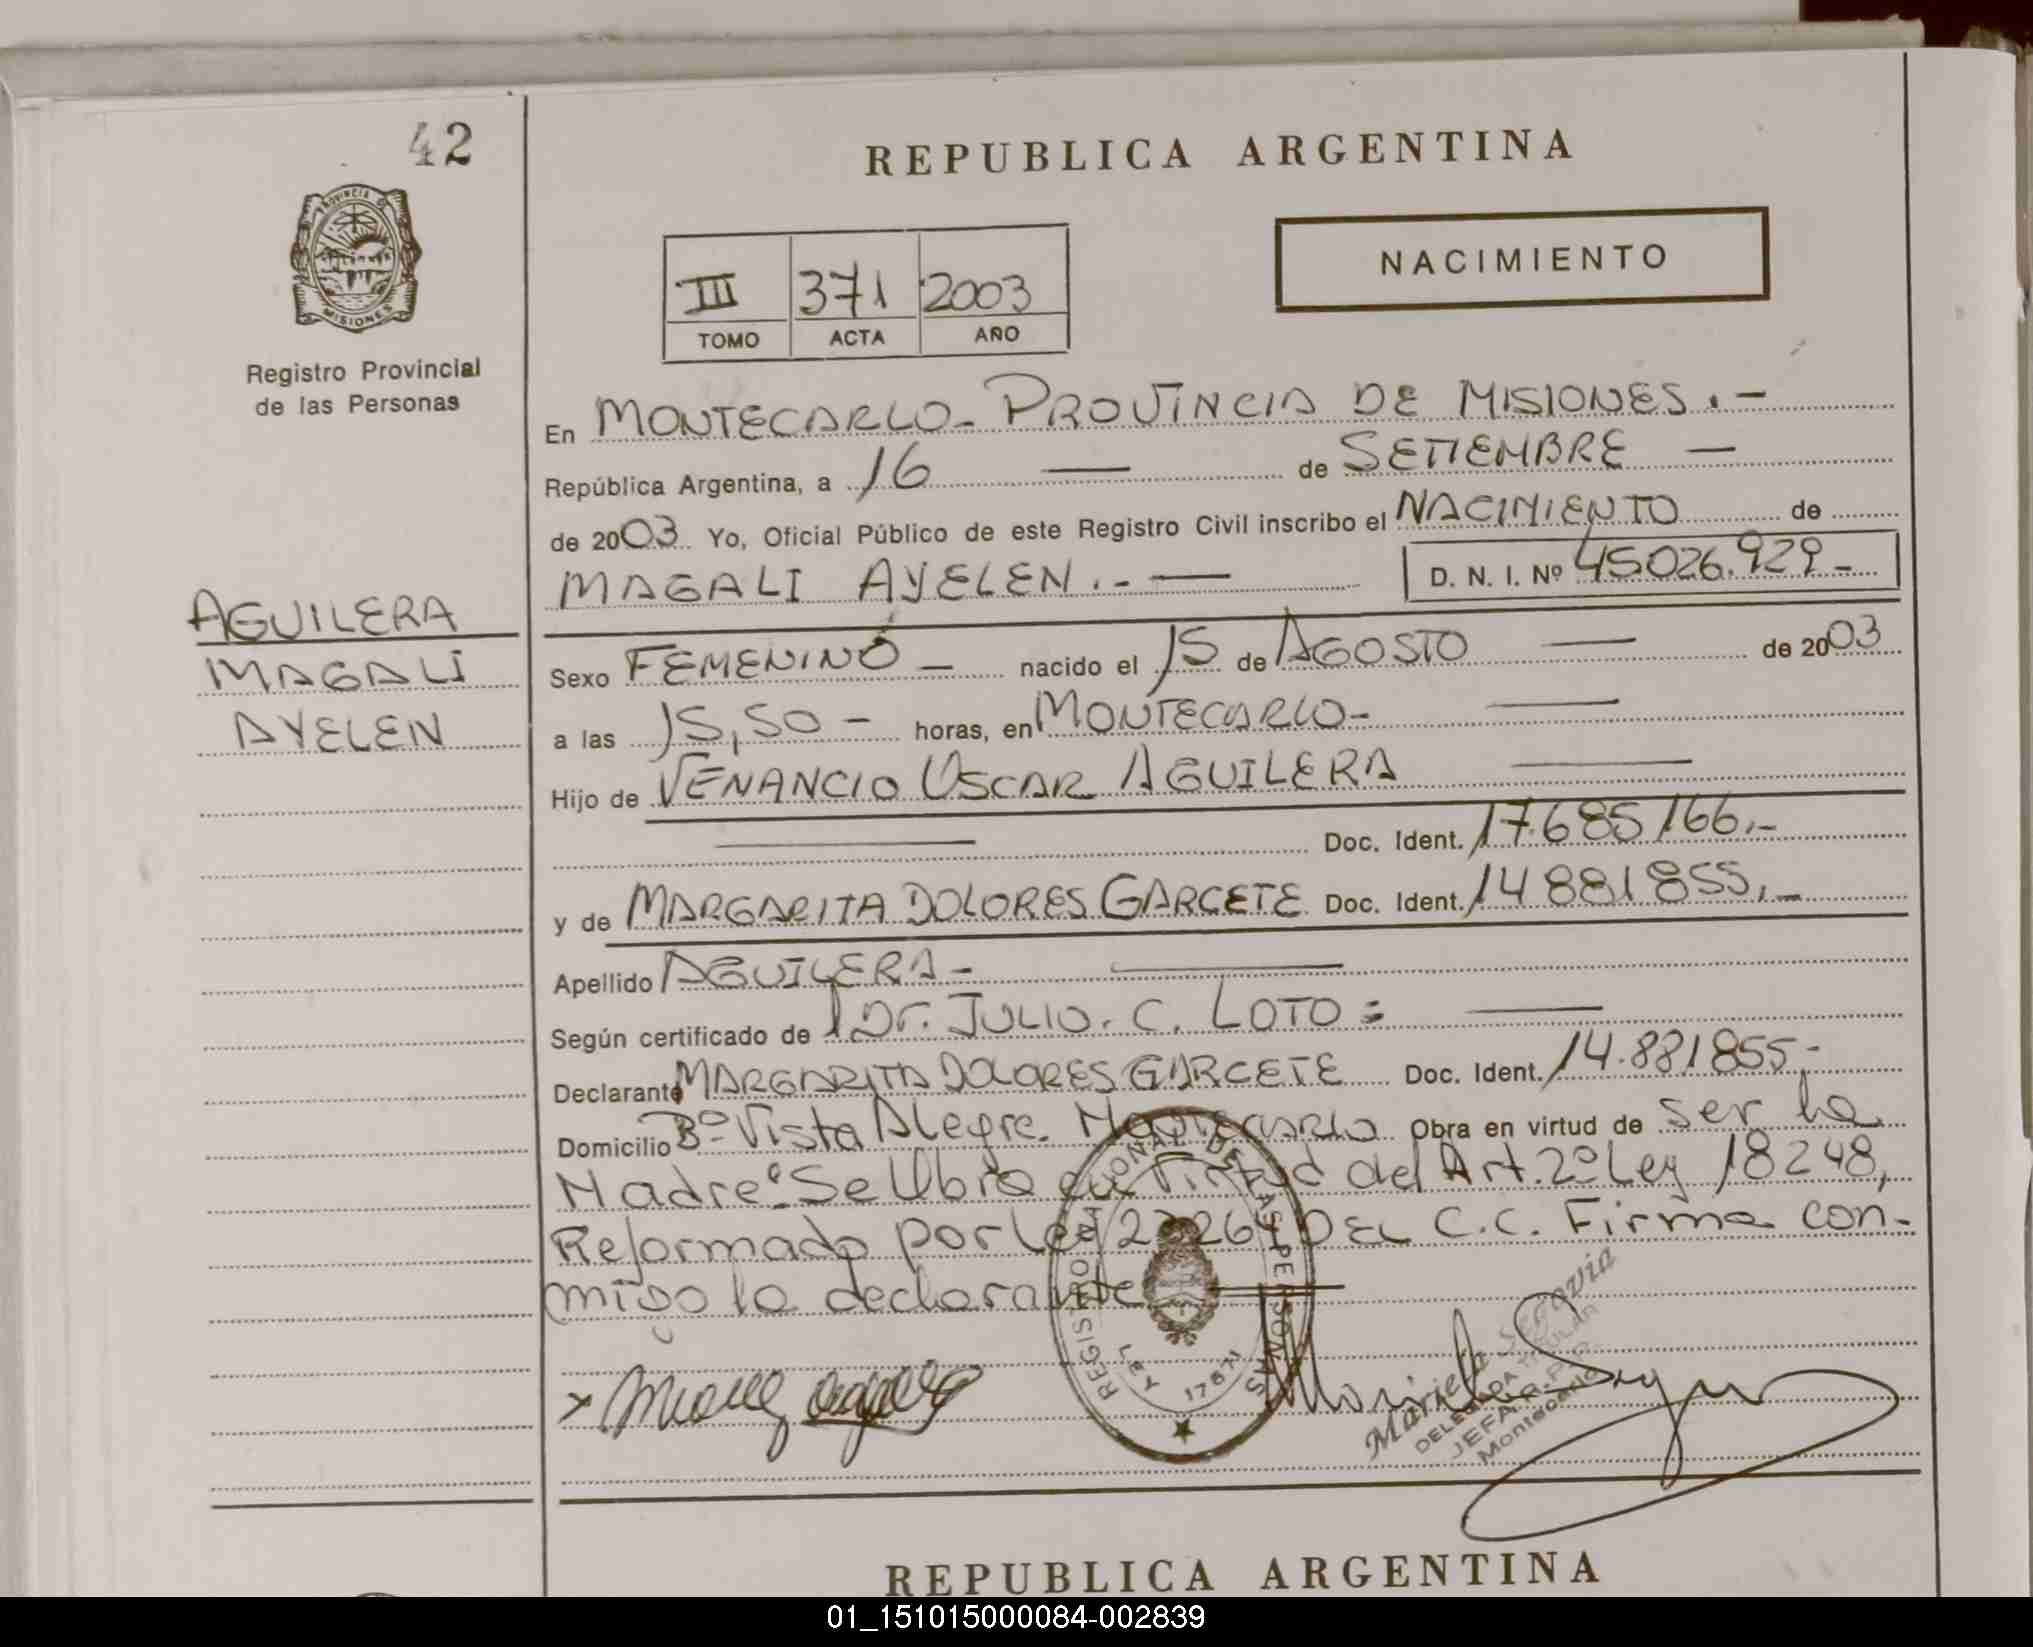 42
REPUBLICA ARGENTINA
PROVINCIA DE
MISIONES
Registro Provincial
de las Personas
III 371 2003
TOMO ACTA AÑO
NACIMIENTO
En MONTECARLO - PROVINCIA DE MISIONES.-
República Argentina, a 16 — de SETIEMBRE —
de 2003 Yo, Oficial Público de este Registro Civil inscribo el NACIMIENTO de
MAGALI AYELEN.- — D. N. I. Nº 45026.929-
AGUILERA
MAGALI
AYELEN
Sexo FEMENINO - nacido el 15 de AGOSTO — de 2003
a las 15,50 - horas, en MONTECARLO- —
Hijo de VENANCIO OSCAR AGUILERA —
— Doc. Ident. 17.685166.-
y de MARGARITA DOLORES GARCETE Doc. Ident. 14881855,-
Apellido AGUILERA- —
Según certificado de Dr. JULIO. C. LOTO= —
Declarante MARGARITA DOLORES GARCETE Doc. Ident. 14.881855,-
Domicilio Bº Vista Alegre. Montecarlo Obra en virtud de ser la
Madre: Se Obra en virtud del Art. 2º Ley 18248,
Reformado por Ley 23264 DEL C.C. Firma con-
migo la declarante =
REGISTRO NACIONAL DE LAS PERSONAS
LEY 17671
Mariela Segovia
DELEGADA TITULAR
JEFA R.P.P.
Montecarlo
REPUBLICA ARGENTINA
01_151015000084-002839